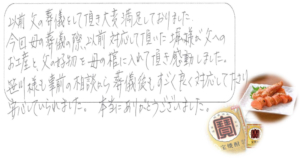 以前父の葬儀をして頂き大変満足しておりました。
今回母の葬儀の際、以前対応して頂いた 様が父への
お土産と父の好物を母の棺に入れて頂き感動しました。
笹川様も事前の相談から葬儀後もすごく良く対応して下さり
安心していられました。本当にありがとうございました。
寶